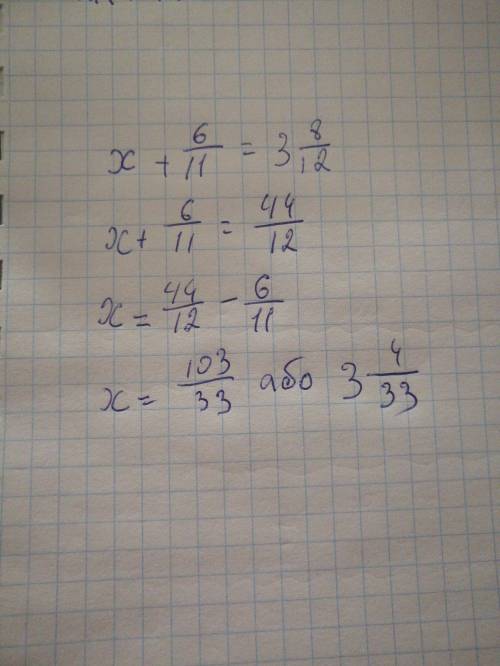 x + 6/11 = 3 8/12
x + 6/11 = 44/12
x = 44/12 - 6/11
x = 103/33 або 3 4/33